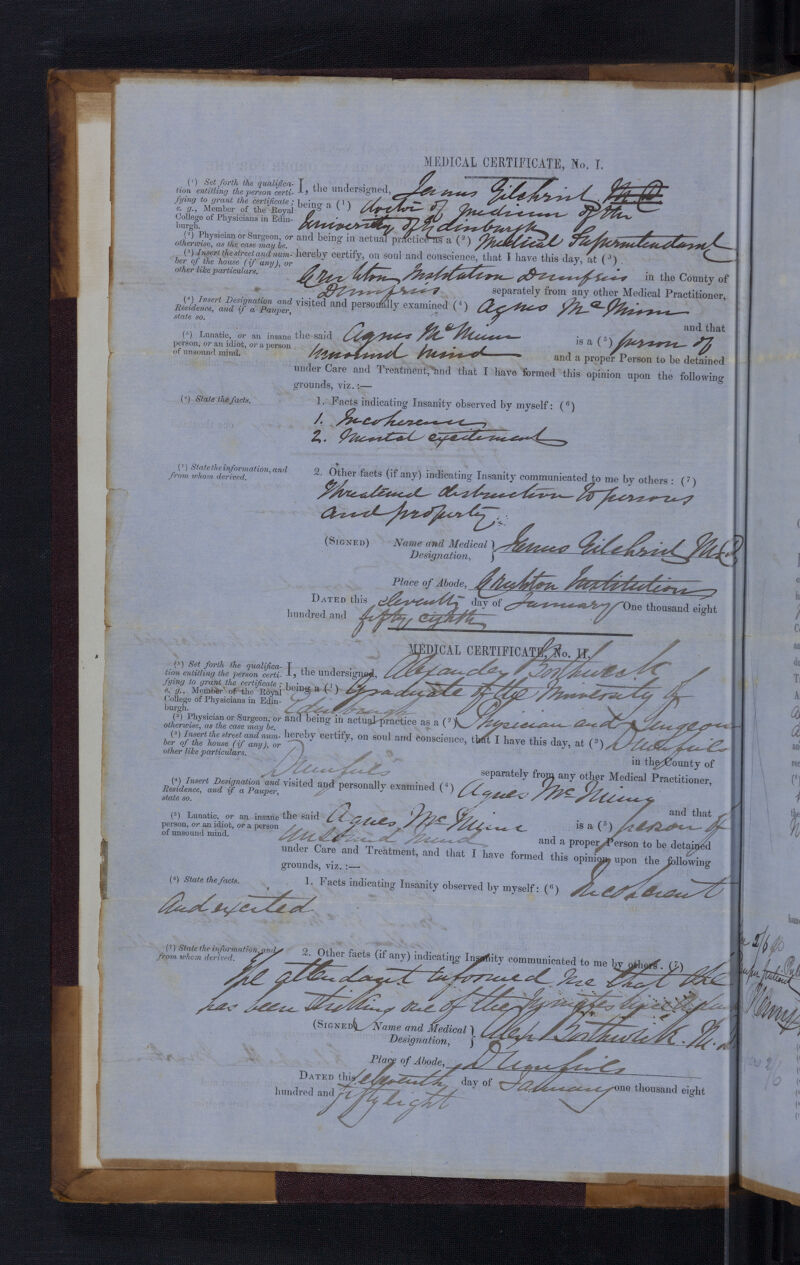 MEDICAL CERTIFICATE, No. I.
(¹) Set forth the qualifica-
tion entitling the person certi-
fying to grant the certificate;
e. g., Member of the Royal
College of Physicians in Edin-
burgh.
I, the undersigned, James Gilchrist M.D.
being a (¹) doctor of medicine of the
University of Edinburgh
(²) Physician or Surgeon, or
otherwise, as the case may be.
and being in actual practice as a (²) Medical Superintendent
(³) Insert the street and num-
ber of the house (if any), or
other like particulars.
hereby certify, on soul and conscience, that I have this day, at (³)
Crichton Institution Dumfries in the County of
Dumfries separately from any other Medical Practitioner,
(⁴) Insert Designation and
Residence, and if a Pauper,
state so.
visited and personally examined (⁴) Agnes McMinn
and that
(⁵) Lunatic, or an insane
person, or an idiot, or a person
of unsound mind.
the said Agnes McMinn is a (⁵) person of
unsound mind and a proper Person to be detained
under Care and Treatment, and that I have formed this opinion upon the following
grounds, viz. :—
(⁶) State the facts.
1. Facts indicating Insanity observed by myself: (⁶)
1. Incoherence
2. Mental excitement
(⁷) State the information, and
from whom derived.
2. Other facts (if any) indicating Insanity communicated to me by others : (⁷)
Threatened destruction to persons
and property.
(SIGNED) Name and Medical Designation, } James Gilchrist M.D.
Place of Abode, Crichton Institution
DATED this eleventh day of January One thousand eight
hundred and fifty eighth
MEDICAL CERTIFICATE, No. II.
(¹) Set forth the qualifica-
tion entitling the person certi-
fying to grant the certificate;
e. g., Member of the Royal
College of Physicians in Edin-
burgh.
I, the undersigned, Alexander Borthwick
being a (¹) Graduate of the University of
Edinburgh
(²) Physician or Surgeon, or
otherwise, as the case may be.
and being in actual practice as a (²) Physician and Surgeon
(³) Insert the street and num-
ber of the house (if any), or
other like particulars.
hereby certify, on soul and conscience, that I have this day, at (³) Dumfries
in the County of
Dumfries separately from any other Medical Practitioner,
(⁴) Insert Designation and
Residence, and if a Pauper,
state so.
visited and personally examined (⁴) Agnes McMinn
and that
(⁵) Lunatic, or an insane
person, or an idiot, or a person
of unsound mind.
the said Agnes McMinn is a (⁵) person of
unsound mind and a proper Person to be detained
under Care and Treatment, and that I have formed this opinion upon the following
grounds, viz. :—
(⁶) State the facts.
1. Facts indicating Insanity observed by myself: (⁶) Incoherent
and excited
(⁷) State the information, and
from whom derived.
2. Other facts (if any) indicating Insanity communicated to me by others. (⁷)
The attendant informed me that she
has been striking one of the Inmates
(SIGNED) Name and Medical Designation, } Alexr Borthwick. M.D
Place of Abode, Dumfries
DATED this eleventh day of January one thousand eight
hundred and fifty eight
2/6
2/6